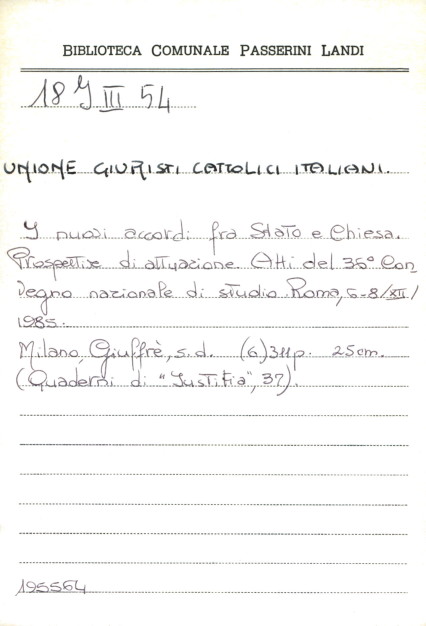 BIBLIOTECA COMUNALE PASSERINI LANDI
18 Y III 54
UNIONE GIURISTI CATTOLICI ITALIANI.
I nuovi accordi fra Stato e Chiesa.
Prospettive di attuazione. Atti del 36° Con
vegno nazionale di studio Roma, 6-8/XII/
1985.
Milano, Giuffrè, s.d. (6) 311 p. 25 cm.
(Quaderni di "Iustitia", 37).
195564